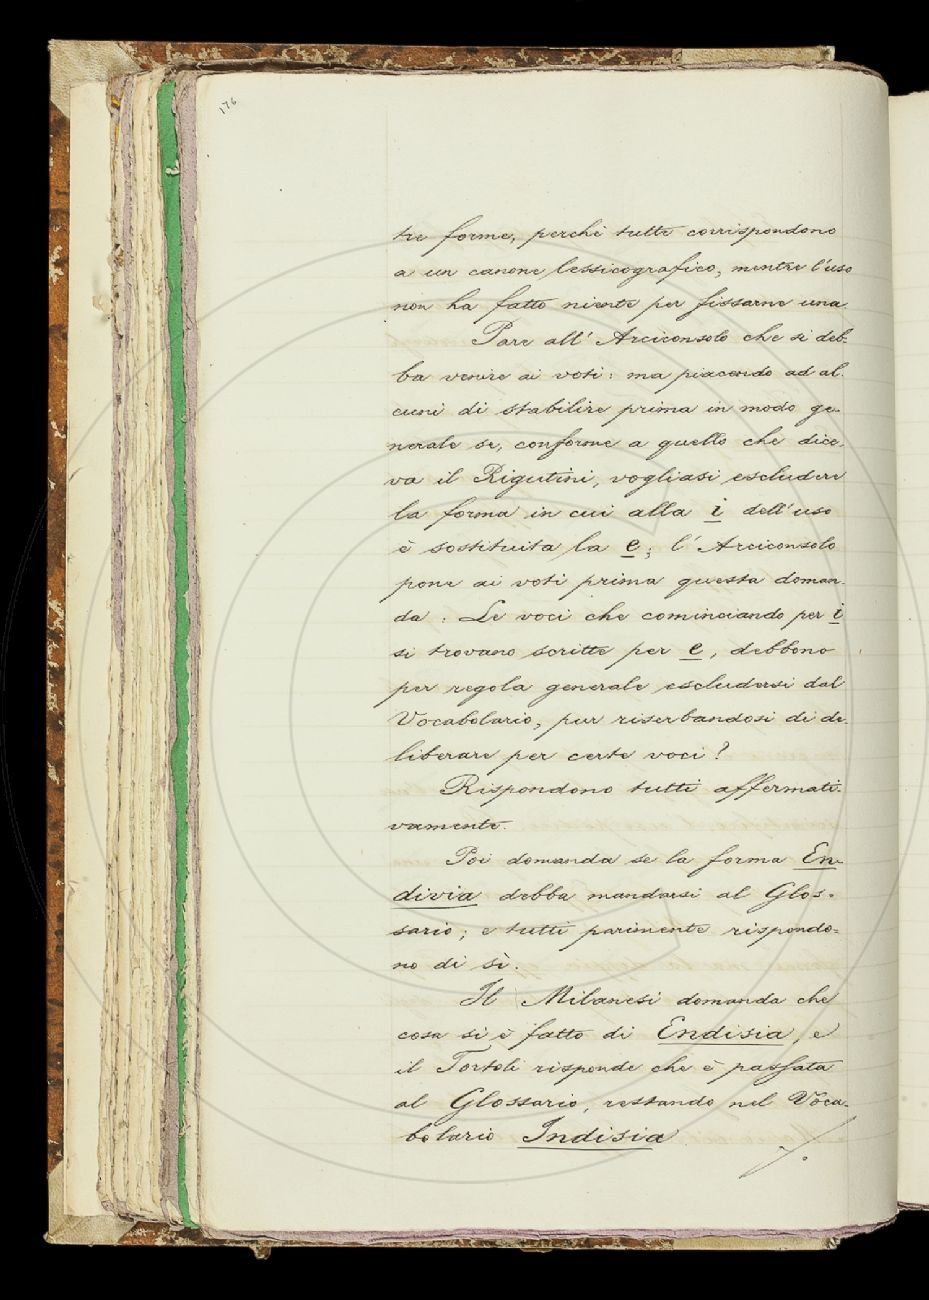 176
tre forme, perchè tutte corrispondono
a un canone lessicografico, mentre l'uso
non ha fatto niente per fissarne una.
Pare all'Arciconsolo che si deb-
ba venire ai voti: ma piacendo ad al-
cuni di stabilire prima in modo ge-
nerale se, conforme a quello che dice-
va il Rigutini, vogliasi escludere
la forma in cui alla i dell'uso
è sostituita la e; l'Arciconsolo
pone ai voti prima questa doman-
da: Le voci che cominciando per i
si trovano scritte per e, debbono
per regola generale escludersi dal
Vocabolario, pur riserbandosi di de-
liberare per certe voci?
Rispondono tutti affermati-
vamente.
Poi domanda se la forma En-
divia debba mandarsi al Glos-
sario; e tutti parimente rispondo-
no di sì.
Il Milanesi domanda che
cosa si è fatto di Endisia, e
il Tortoli risponde che è passata
al Glossario, restando nel Voca-
bolario Indisia